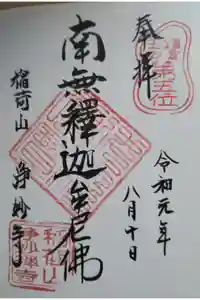 奉拝
南無釋迦牟尼佛
稲荷山
浄妙寺
令和元年
八月十日